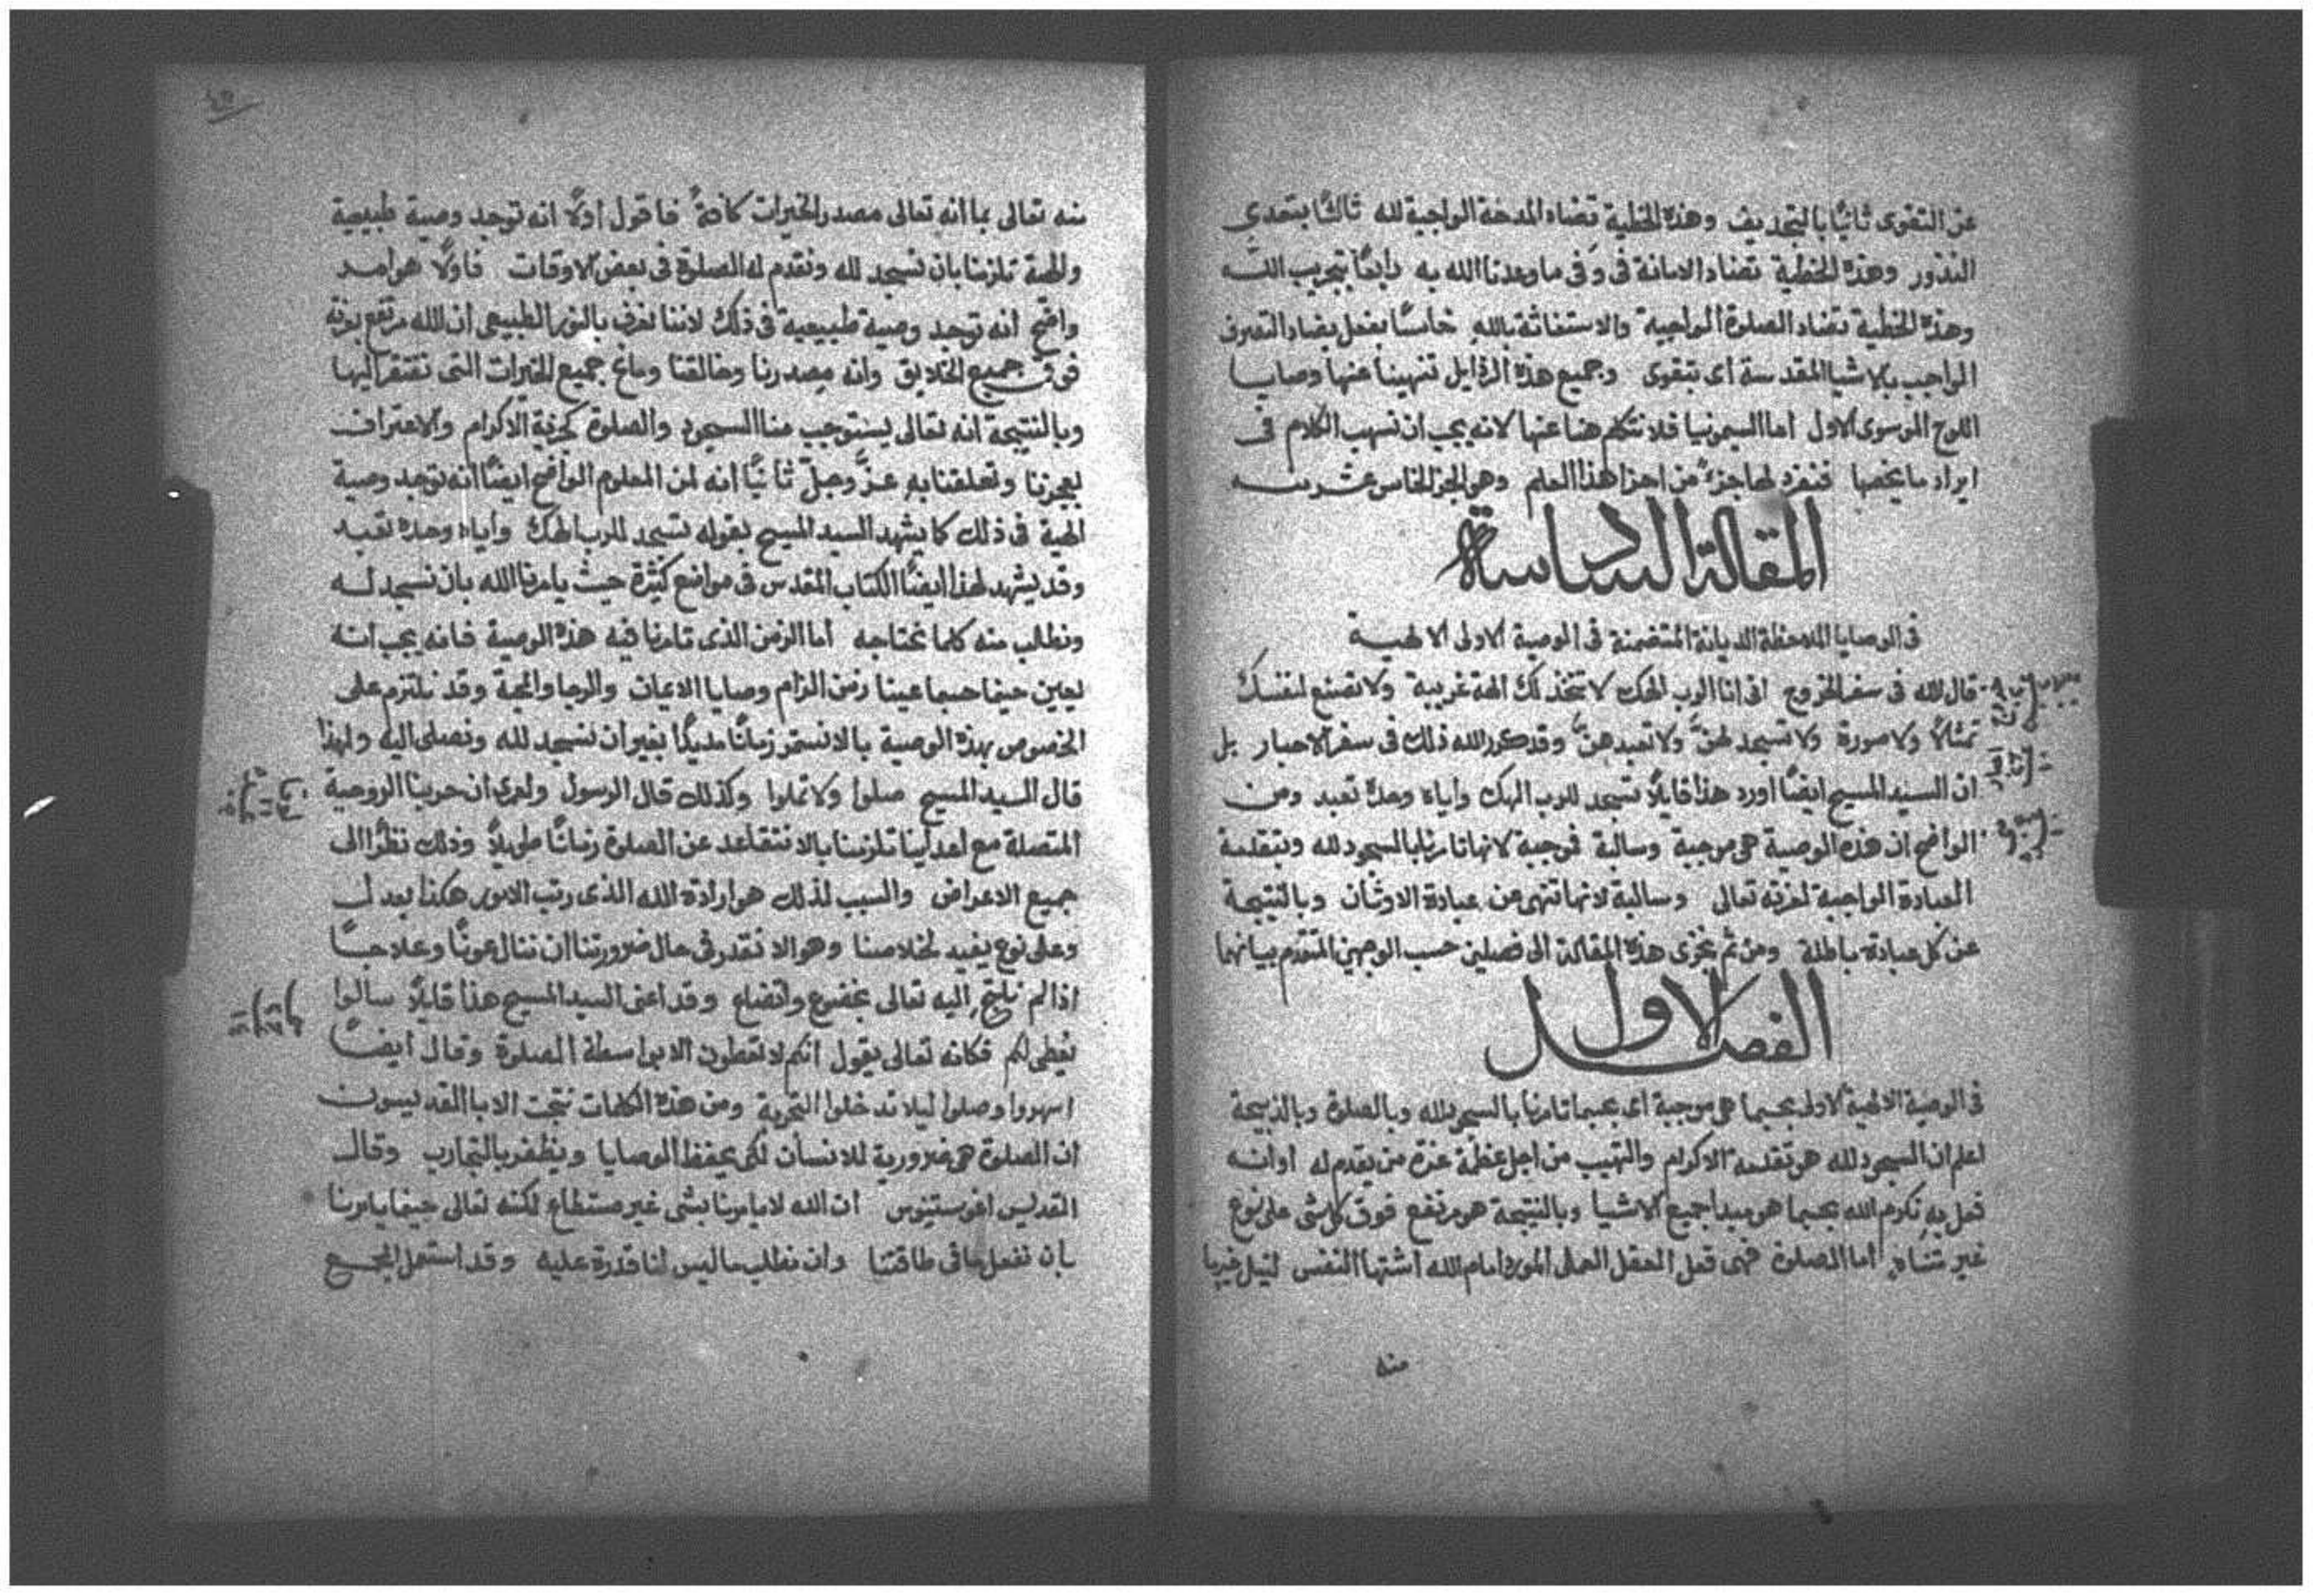 عن التقوى ثانيًا بالتجديف وهذه الخطية تضاد المدحة الواجبة لله ثالثًا بتعدي
النذور وهذه الخطية تضاد الامانة في وَفى ما وعدنا الله به رابعًا بتجريب الله
وهذه الخطية تضاد الصلوة الواجبة والاستغاثة بالله خامسًا بفعل يضاد التصرف
الواجب بالاشيا المقدسة اى بتقوى وجميع هذه الرذايل تنهينا عنها وصايا
اللوح الموسوى الاول اما السيمونيا فلا نتكلم هنا عنها لانه يجب ان نسهب الكلام فى
ايراد ما يخصها فنفرد لها جزءً من اجزا هذا العلم وهو الجز الخامس عشر منه
المقالة السادسة
فى الوصايا الملاحظة الديانة المتضمنة فى الوصية الاولى الالهية
قال الله فى سفر الخروج انى انا الرب الهك لا تتخذ لك الهة غريبة ولا تصنع لنفسك
تمثالًا ولا صورة ولا تسجد لهنَّ ولا تعبدهنَّ وقد كرر الله ذلك فى سفر الاحبار بل
ان السيد المسيح ايضًا اورد هذا قايلًا تسجد للرب الهك واياه وحدهُ تعبد ومن
الواضح ان هذه الوصية هى موجبة وسالبة فوجبة لانها تامرنا بالسجود لله وبتقدمة
العبادة الواجبة لعزته تعالى وسالبة لانها تنهى عن عبادة الاوثان وبالنتيجة
عن كل عبادة باطلة ومن ثم تجزى هذه المقالة الى فصلين حسب الوجهين المتقدم بيانهما
الفصل الاول
فى الوصية الالهية الاولى بحسبما هى موجبة اى بحسبما تامرنا بالسجود لله وبالصلوة وبالذبيحة
اعلم ان السجود لله هو تقدمة الاكرام والتهيب من اجل عظمة عزة من يقدم له او انه
فعل بهِ نكرم الله بحسبما هو مبدا جميع الاشيا وبالنتيجة هو مرتفع فوق كل شى على نوع
غير متناهٍ اما الصلوة فهى فعل العقل العملى المورد امام الله اشتها النفس لنيل خير ما
منه
منه تعالى بما انه تعالى مصدر الخيرات كافةً فاقول اولًا انه توجد وصية طبيعية
والهية تلزمنا بان نسجد لله ونقدم له الصلوة فى بعض الاوقات فاولًا هو امر
واضح انه توجد وصية طبيعية فى ذلك لاننا نعرف بالنور الطبيعى ان الله مرتفع بعزته
فوق جميع الخلايق وانه مصدرنا وخالقنا ومانح جميع الخيرات التى نفتقر اليها
وبالنتيجة انه تعالى يستوجب منا السجود والصلوة كجزية الاكرام والاعتراف
بعجزنا وتعلقنا بهِ عزَّ وجلّ ثانيًا انه لمن المعلوم الواضح ايضًا انه توجد وصية
الهية فى ذلك كما يشهد السيد المسيح بقوله تسجد للرب الهك واياه وحده تعبد
وقد يشهد لهذا ايضًا الكتاب المقدس فى مواضع كثيرة حيث يامرنا الله بان نسجد له
ونطلب منه كلما نحتاجه اما الزمن الذى تامرنا فيه هذه الوصية فانه يجب انه
يعين حينما حسبما عينا زمن الزام وصايا الايمان والرجا والمحبة وقد نلتزم على
الخصوص بهذه الوصية بالا نستمر زمانًا مديدًا بغير ان نسجد لله ونصلى اليه ولهذا
قال السيد المسيح صلوا ولا تملوا وكذلك قال الرسول ولعمرى ان حربنا الروحية
المتصلة مع اعداينا تلزمنا بالا نتقاعد عن الصلوة زمانًا طويلًا وذلك نظرًا الى
جميع الاعراض والسبب لذلك هو ارادة الله الذى رتب الامور هكذا بعدل
وعلى نوع يفيد لخلاصنا وهو الا نقدر فى حال ضرورتنا ان ننال عونًا وعلاجًا
اذا لم نلتجِ اليه تعالى بخضوع واتضاع وقد اعنى السيد المسيح هذا قايلًا سالوا
تعطى لكم فكانه تعالى يقول انكم لا تعطون الا بواسطة الصلوة وقال ايضًا
اسهروا وصلوا ليلا تدخلوا التجربة ومن هذه الكلمات نتجت الابا القديسون
ان الصلوة هى ضرورية للانسان لكى يحفظ الوصايا ويظفر بالتجارب وقال
القديس اغوستينوس ان الله لا يامرنا بشى غير مستطاع لكنه تعالى حينما يامرنا
بان نفعل ما فى طاقتنا وان نطلب ما ليس لنا قدرة عليه وقد استعمل المجمع